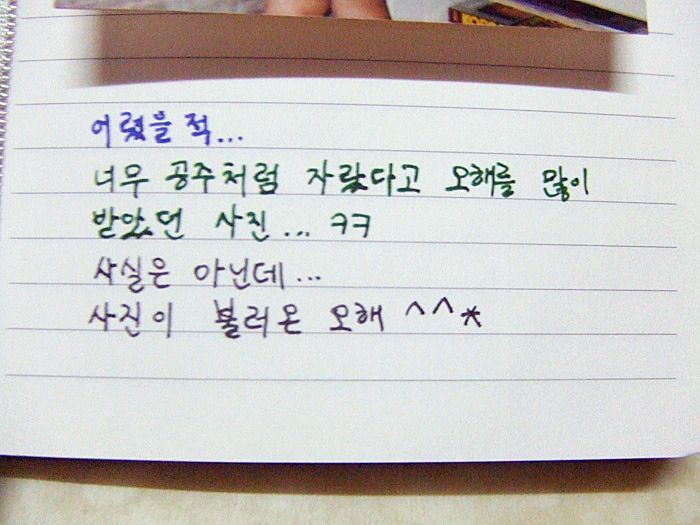 KODA
어렸을 적...
너무 공주처럼 자랐다고 오해를 많이
받았던 사진... ㅋㅋ
사실은 아닌데...
사진이 불러온 오해 ^^*